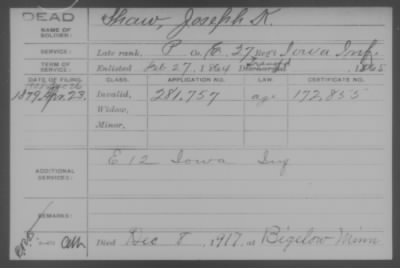 DEAD
NAME OF SOLDIER:
Shaw, Joseph K.
SERVICE:
Late rank, P Co. G, 27 Reg't Iowa Inf.
TERM OF SERVICE:
Enlisted Feb 27, 1864 Discharged 1865
DATE OF FILING. CLASS. APPLICATION NO. LAW CERTIFICATE NO.
1879 Apr. 23. Invalid, 281,757 age 172,855
Widow,
Minor,
ADDITIONAL SERVICES:
E 12 Iowa Inf
REMARKS:
Died Dec 8, 1917, at Bigelow Minn